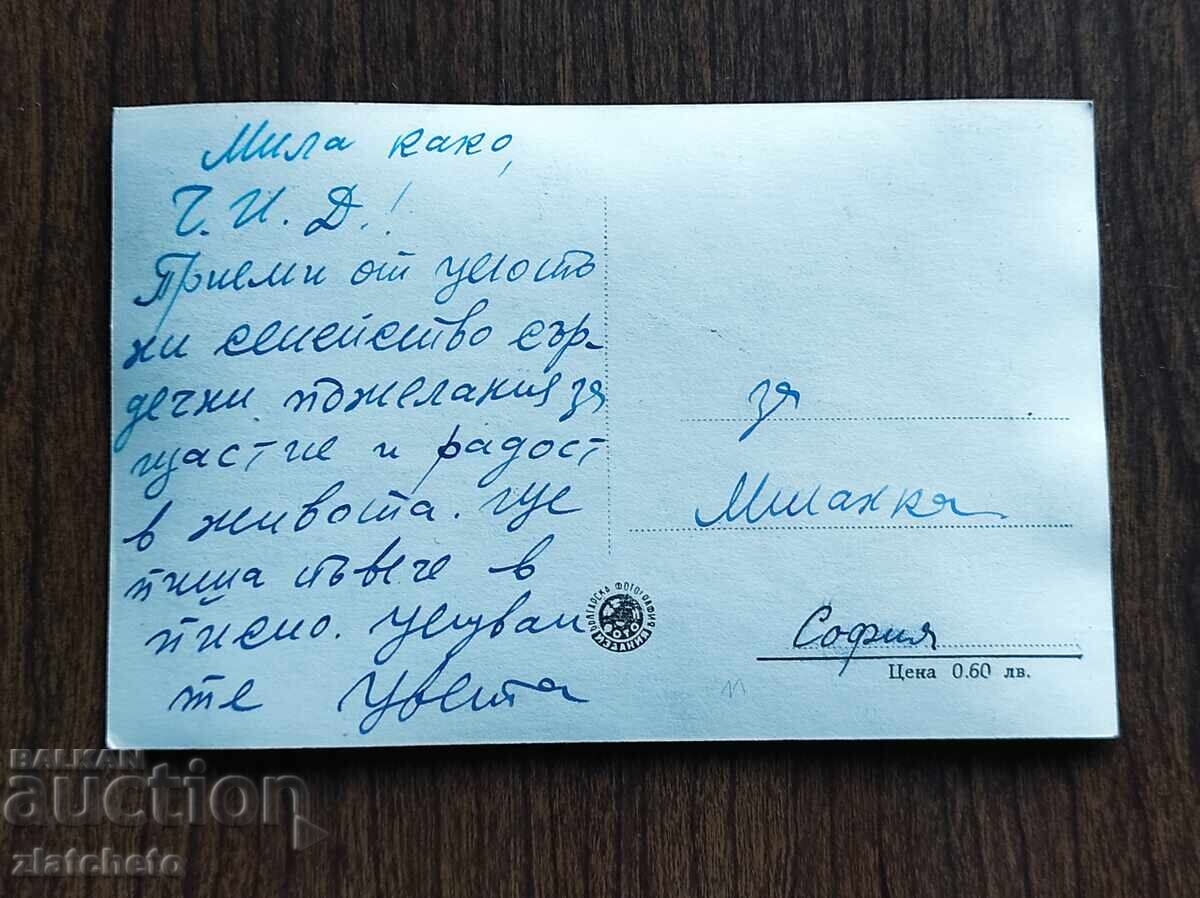 Мила како,
Ч.И.Д.!
Приеми от цялото
ни семейство сър-
дечни пожелания за
щастие и радост
в живота. Ще
пиша повече в
писмо. Целувам
те Цвета
за
Миланка
София
Цена 0.60 лв.
БЪЛГАРСКА ФОТОГРАФИЯ
ФОТО
ИЗДАНИЯ
11
BALKAN
auction
zlatcheto